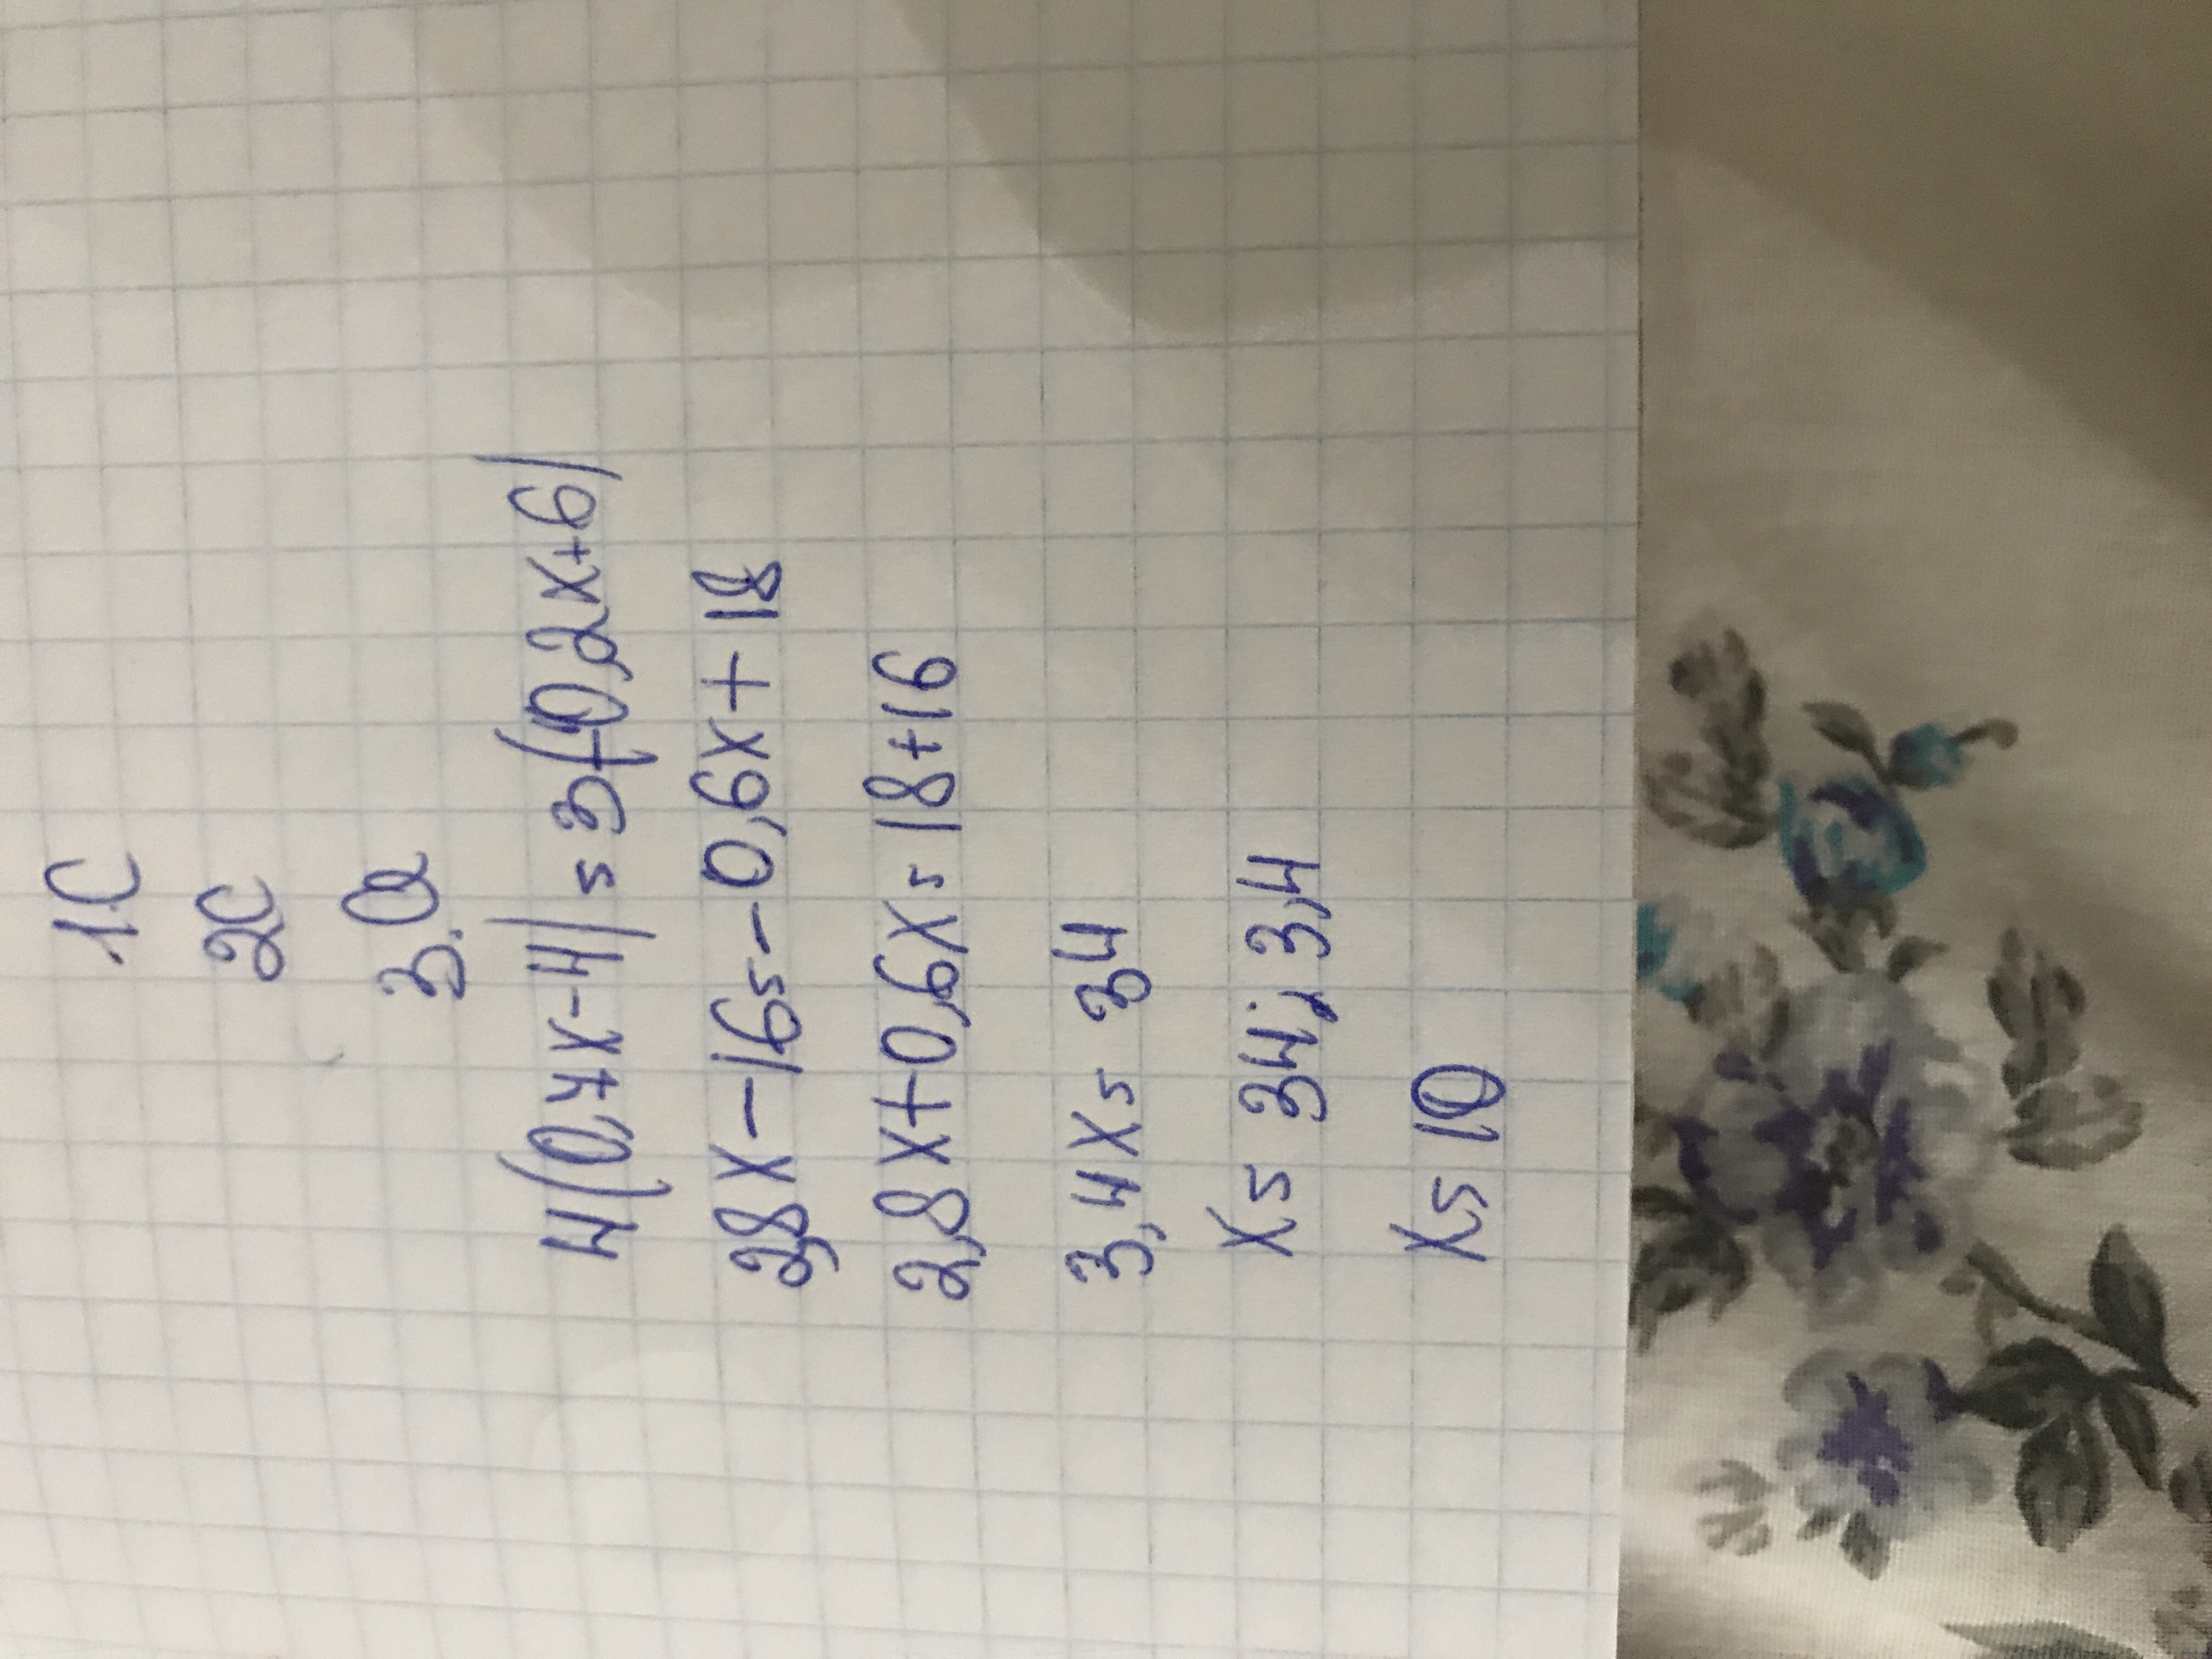 1.C
2C
3.a
4(0,7x-4)=3(-0,2x+6)
2,8x-16=-0,6x+18
2,8x+0,6x=18+16
3,4x=34
x=34:3,4
x=10